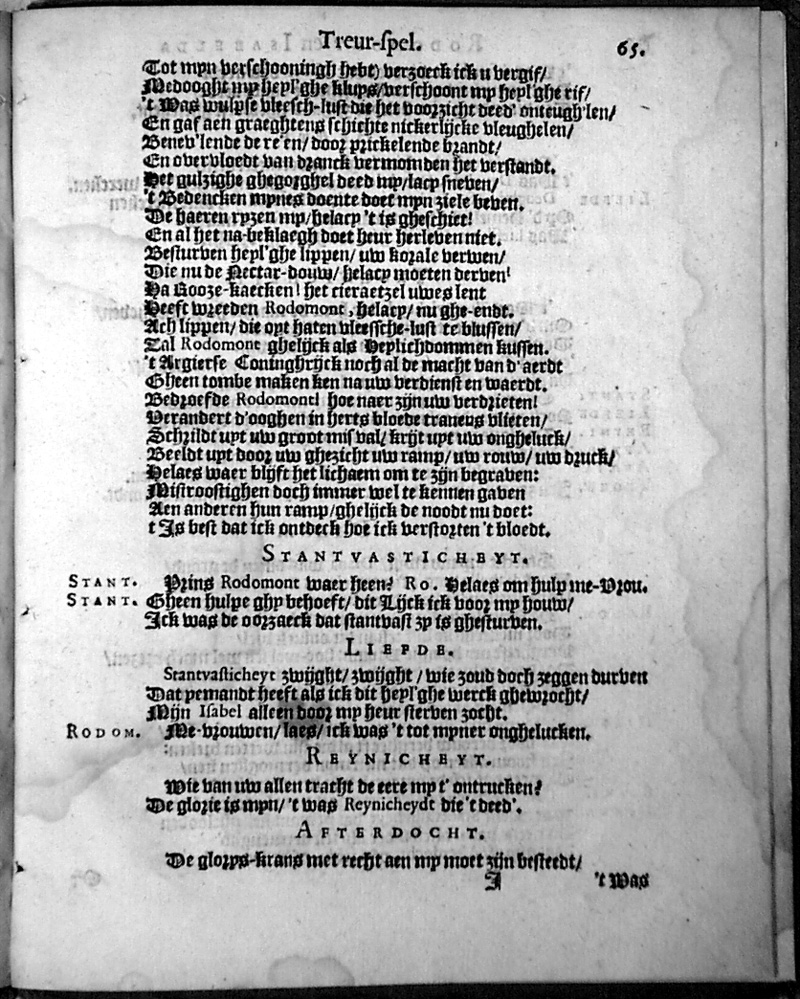 Treur-spel. 65.
Tot myn verschooningh hebt) verzoeck ick u vergif/
Medooght my heyl'ghe klups/verschoont my heyl'ghe rif/
't Was wulpse vleesch-lust die het voorzicht deed' onteugh'len/
En gaf aen graeghtens schichte nickerlijcke vleughelen/
Benev'lende de re'en/ door prickelende brandt/
En overvloedt van dranck vermomden het verstandt.
Het gulzighe ghegorghel deed my/lacy sneven/
't Bedencken mynes doente doet mijn ziele beven.
De haeren ryzen my/helacy 't is gheschiet!
En al het na-beklaegh doet heur herleven niet.
Besturven heyl'ghe lippen/ uw korale verwen/
Die nu de Nectar-douw/ helacy moeten derven!
Ha Rooze-kaecken! het cieraetzel uwes lent
Heeft wreeden Rodomont, helacy/ nu ghe-endt.
Ach lippen/ die oyt haten vleessche-lust te blussen/
Zal Rodomont ghelijck als Heylichdommen kussen.
't Argierse Coninghrijck noch al de macht van d'aerdt
Gheen tombe maken ken na uw verdienst en waerdt.
Bedroefde Rodomont! hoe naer zijn uw verdrieten!
Verandert d'ooghen in herts bloede tranens vlieten/
Schrildt uyt uw groot misval/ krijt uyt uw ongheluck/
Beeldt uyt door uw ghezicht uw ramp/ uw rouw/ uw druck/
Helaes waer blijft het lichaem om te zijn begraven:
Mistroostighen doch immer wel te kennen gaven
Aen anderen hun ramp/ghelijck de noodt nu doet:
t Is best dat ick ontdeck hoe ick verstorten 't bloedt.
STANTVASTICHEYT.
STANT. Prins Rodomont waer heen? Ro. Helaes om hulp me-Vrou.
STANT. Gheen hulpe ghy behoeft/ dit Lijck ick voor my houw/
Ick was de oorzaeck dat stantvast zy is ghesturven.
LIEFDE.
Stantvasticheyt zwijght/ zwijght / wie zoud doch zeggen durven
Dat yemandt heeft als ick dit heyl'ghe werck ghewrocht/
Mijn Isabel alleen door my heur sterven zocht.
RODOM. Me-vrouwen/ laes/ ick was 't tot myner onghelucken.
REYNICHEYT.
Wie van uw allen tracht de eere my t'ontrucken?
De glorie is myn/ 't was Reynicheydt die 't deed'.
AFTERDOCHT.
De glorys-krans met recht aen my moet zijn besteedt/
I 't Was